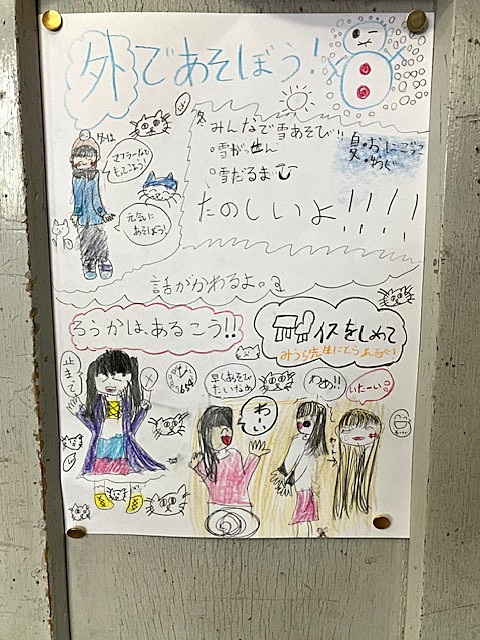 外であそぼう!
冬は
マフラーもってこよう!
元気にあそぼう!
冬
みんなで雪あそび!!
・雪がっせん
・雪だるま
たのしいよ!!!!
夏・おにごっこ
話がかわるよ。
ろうかは、あるこう!!
イスをしめて
みうら先生に
止まって
早くあそびたいなぁ
わーい
いたーい